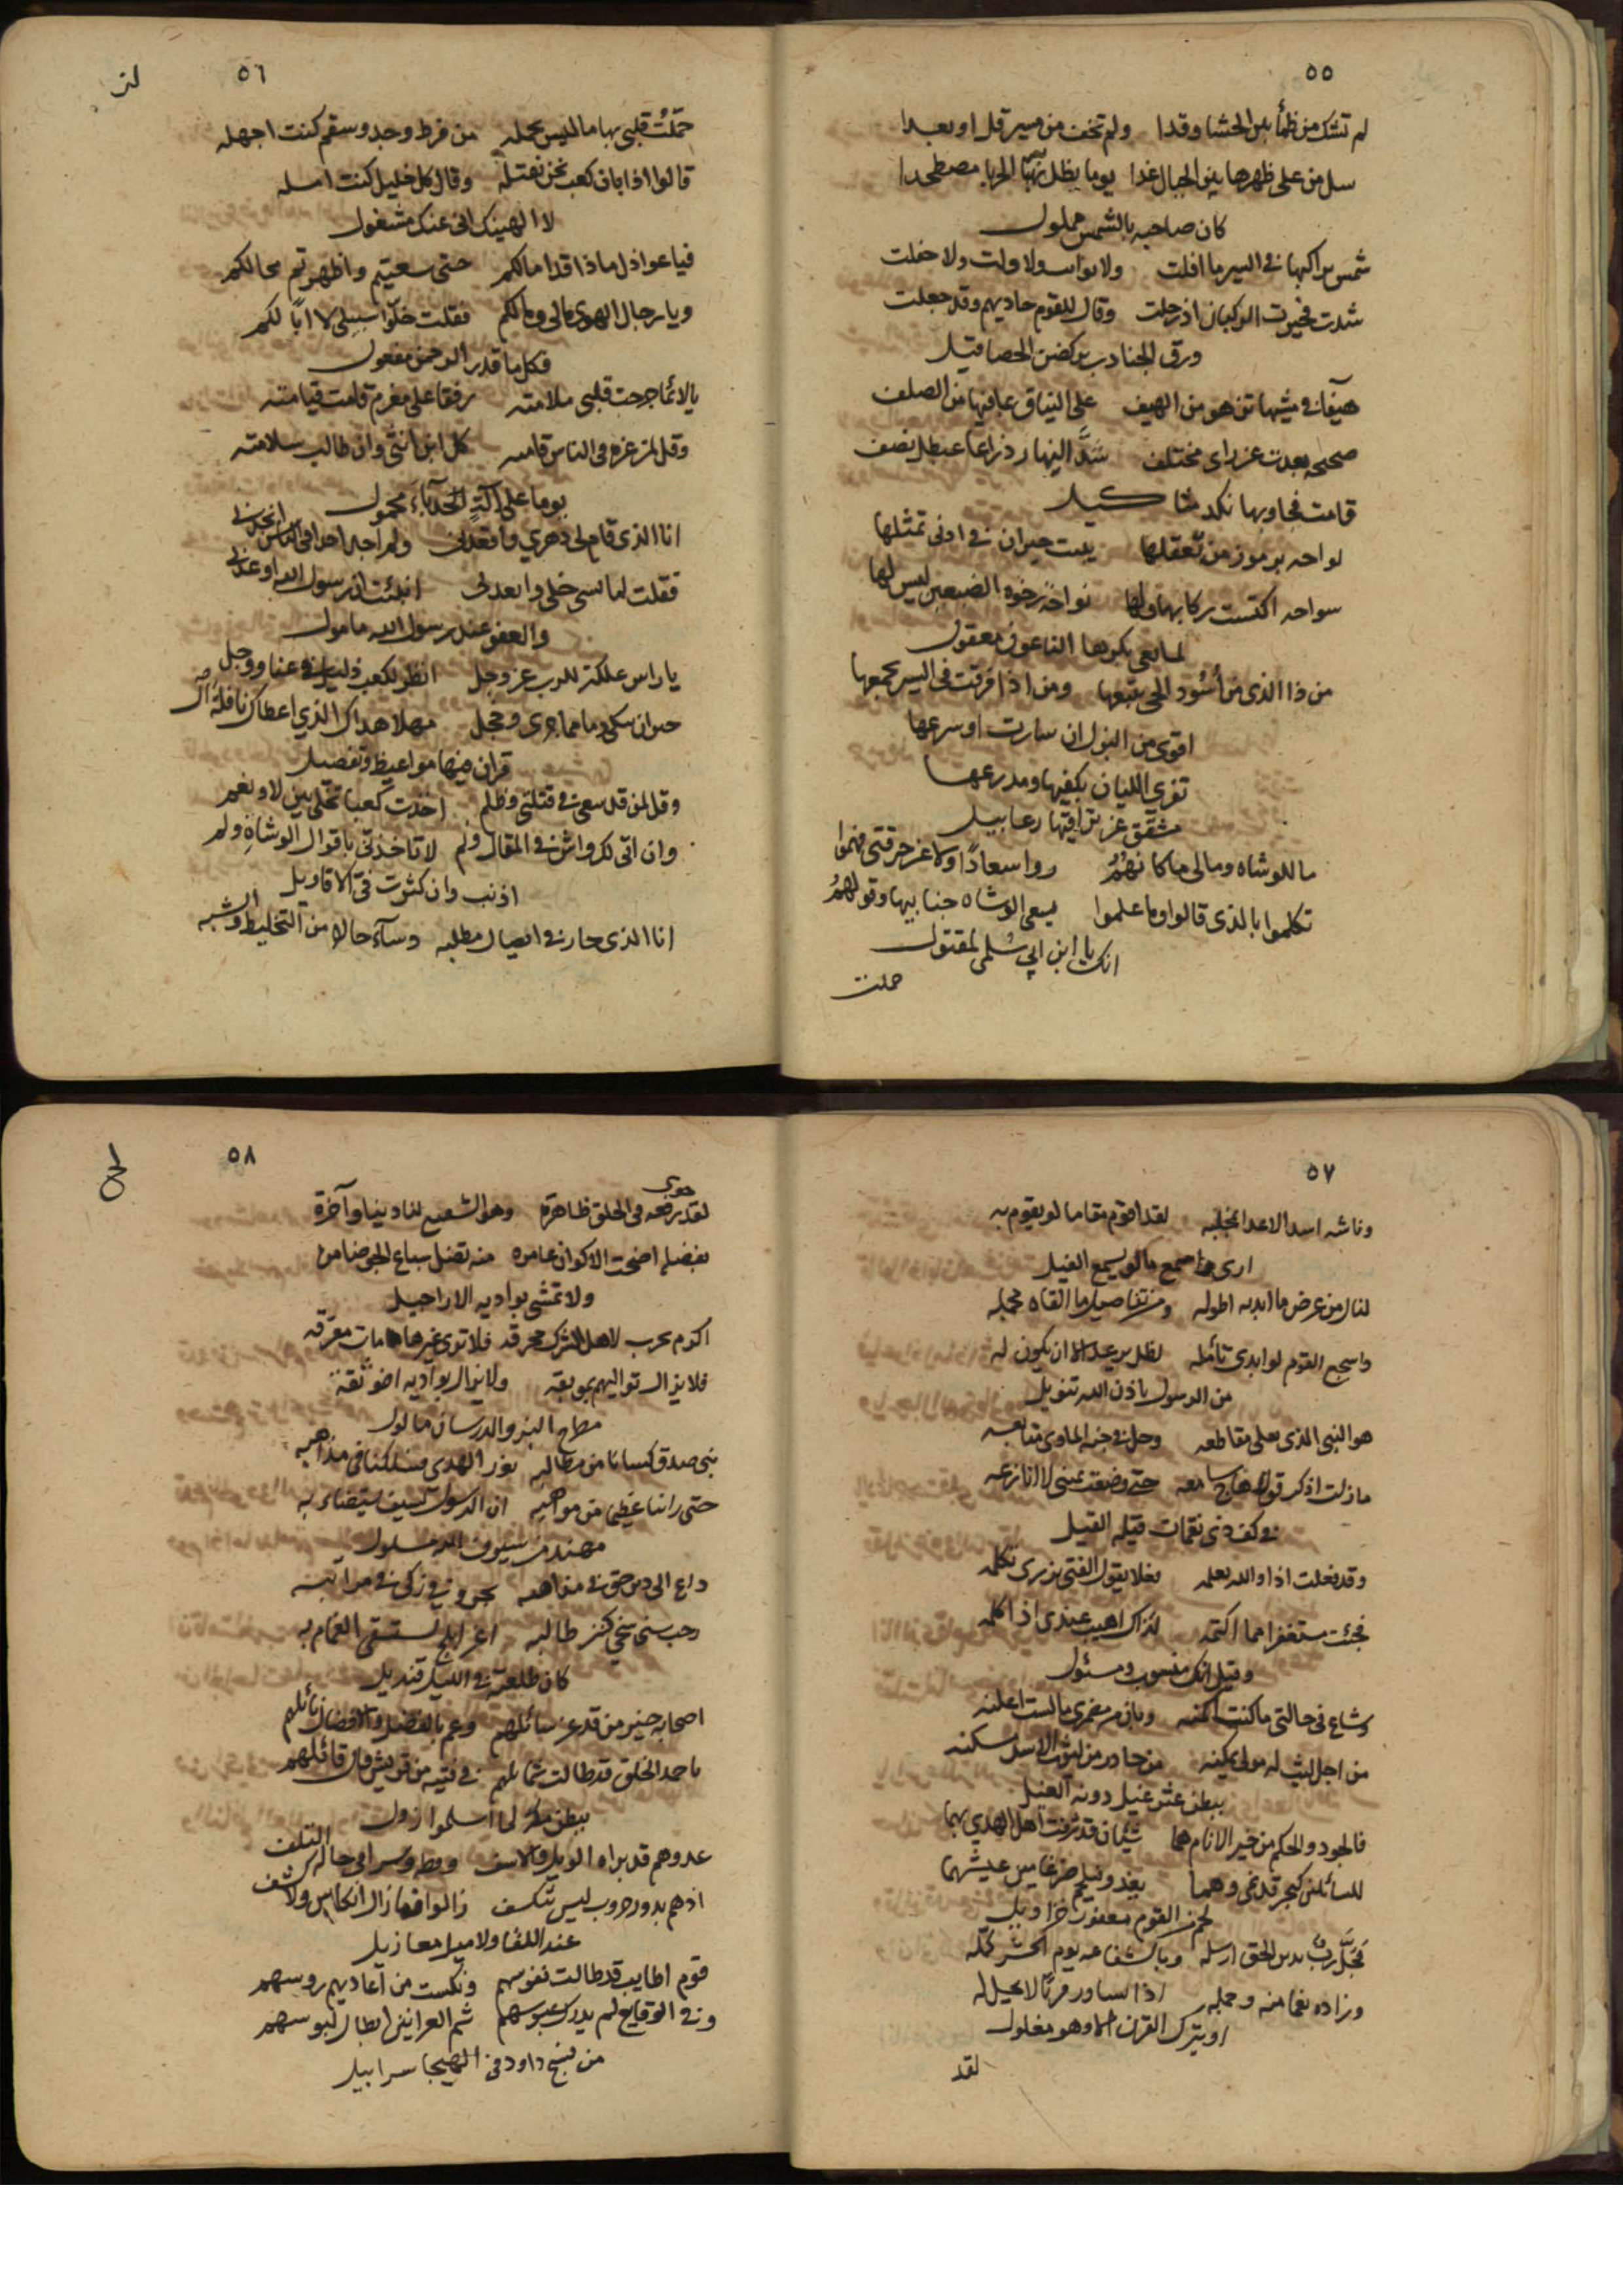 ٥٥
لم تشك من ظمأ بين الحشا وقدا ولم تخف من مسير قل او بعدا
سل من على ظهرها بين الجبال غدا يوما يظل به الحربا مصطخدا
كان صاحبه بالشمس مملول
شمس براكبها في السير ما افلت ولا ولت ولا خلت
شدت فحيرت الركبان اذ رحلت وقال للقوم حاديهم وقد جعلت
ورق الجنادب يركضن الحصا قيل
هيفا في مشيها من الهيف على النياق من الصلف
صحيحه بعدت عن راى مختلف شد النهار ذراعا عيطل نصف
قامت فجاوبها نكد مثاكيل
لواحه برموز من تعقلها يبت حيران في ادنى تمثلها
سواحه اكتست نواحة رخوة الضبعين ليس لها
لما نعى بكرها الناعون معقول
من ذا الذى من أسود الحى يتبعها ومن اذا فرقت فى السير يجمعها
اقوى من البزل ان سارت او سرعها
تفري اللبان بكفيها ومدرعها
مشقق عن تراقيها رعابيل
ما للوشاه ومالى ما كانهم روا سعادا ولا عن حرقتى فهموا
تكلموا بالذى قالوا وما علموا يسعى الوشاه جنابيها وقولهم
انك يا ابن ابي سلمى لمقتول
حملت
٥٦
حملت قلبى بها ما ليس يحمله من فرط وجد وسقم كنت اجهله
قالوا اذا بان كعب نحن نقتله وقال كل خليل كنت امله
لا الهينك انى عنك مشغول
فيا عواذل ماذا قدا مالكم حتى سعيتم واظهرتم محالكم
ويا رجال الهوى مالى ومالكم فقلت خلوا سبيلى لا ابا لكم
فكل ما قدر الرحمن مفعول
يا لائما جرحت قلبى ملامته رفقا على مغرم قامت قيامته
وقل لمن غره فى الناس قامته كل ابن انثى وان طالت سلامته
يوما على آلة الحدباء محمول
انا الذى قام لى دهري واقعدنى ولم اجد احدا فى الناس انجدنى
فقلت لما نسى خلى وابعدنى انبئت ان رسول الله اوعدنى
والعفو عند رسول الله مامول
يا راس مملكة للرب عز وجل انظر لكعب ذليل في عنا ووجل
حيران يبكى دما مما جرى وخجل مهلا هداك الذي اعطاك نافلة ال
قران فيها مواعيظ وتفصيل
وقل لمن قد سعى في قتلتى وظلم اخذت كعبا تخلى بين لا ونعم
وان اتى لك واش في المقال ونم لا تاخذنى باقوال الوشاة ولم
اذنب وان كثرت في الاقاويل
انا الذى حار في ايصال مطلبه وسآء حالا من التخليط والشبه
٥٧
لقد اقوم مقاما لو يقوم به
ارى واسمع ما لو يسمع الفيل
لنال من عرض ما ابديه اطوله ومن تفاصيل ما القاه مجمله
واسجع القوم لو ابدى تائمله لظل يرعد الا ان يكون له
من الرسول باذن الله تنويل
هو النبى الذى يعلى مقاطعه وحل في جنة الماوى متابعه
ما زلت اذكر قولا سامعه حتى وضعت يمينى لا انازعه
في كف ذى نقمات قيله القيل
وقد فعلت اذا والله يعلمه
فجئت مستغفرا مما اكتمه لذاك اهيب عندى اذ اكلمه
وقيل انك منسوب ومسئول
وشاع فى حالتى ما كنت اكمنه وبان من مضمرى ما لست اعلنه
من اجل ليث له مولى يمكنه من خادر من ليوث الاسد مسكنه
ببطن عثر غيل دونه الغيل
فالجود والحكم من خير الانام هما شيمان قد شرفت اهل الهدي بهما
يغدو فيلحم ضرغامين عيشهما
لحم من القوم معفور خراديل
فجل رب بدين الحق ارسله وبالشفاعه يوم الحشر كمله
وزاده نعما منه وجمله اذا يساور قرنا لا يحل له
ان يترك القرن الا وهو مغلول
لقد
٥٨
لقد حوى رفعه فى الخلق ظاهرة وهو الشفيع لنا دينيا وآخرة
بفضله اضحت الاكوان عامره منه تضل سباع الجو ضامرة
ولا تمشى بواديه الاراجيل
اكرم بحرب لاهل الشرك محرقه فلا ترى غير هامات معرقه
فلا يزال تواليهم بموبقه ولا يزال بواديه اخو ثقة
مطرح البز والدرسان ماكول
نبى صدق كسانا من مطالبه نور الهدى فسلكنا فى مذاهبه
حتى راينا عظيما من مواهبه ان الرسول لسيف يستضاء به
مهند من سيوف الله مسلول
داع الى دين حق في مذاهبه
رحب سنى سخى كنز طالبه اغر ابلج يستسقى الغمام به
كان طلعته في الليل قنديل
اصحابه خير من قد عز سائلهم وعم بالفضل والافضال نائلهم
يا احمد الخلق قد طالت شمائلهم في فتيه من قريش قال قائلهم
ببطن مكة لما اسلموا زولوا
عدوهم قد براه الويل والاسف وفى حالة التلف
اذ هم بدور حروب ليس تنكسف زالوا فما زال انكاس ولا كشف
عند اللقا ولا ميل معازيل
قوم اطايب قد طالت نفوسهم ونكست من آعاديهم روسهم
وفي الوقايع لم يدرك عبوسهم شم العرانين ابطال لبوسهم
من نسج داود فى الهيجا سرابيل